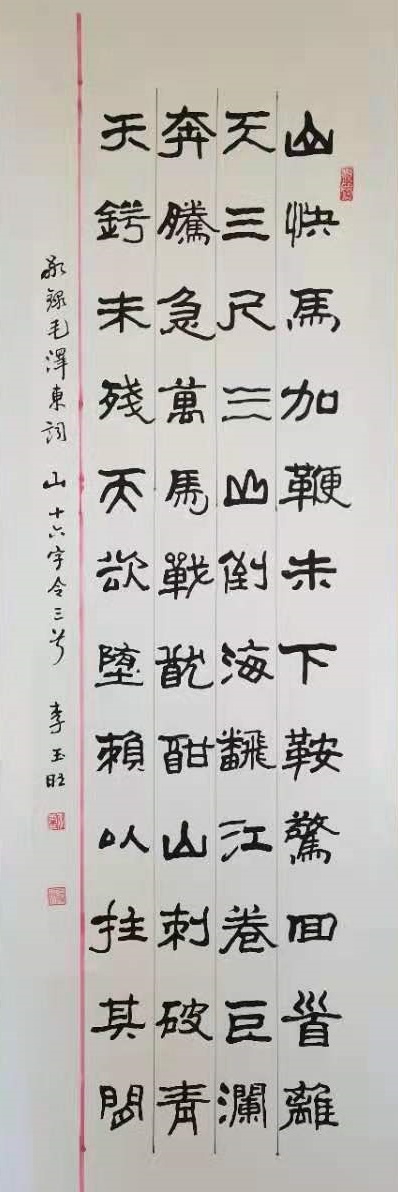 山快馬加鞭未下鞍驚回首離
天三尺三山倒海飜江卷巨瀾
奔騰急萬馬戰猶酣山刺破青
天鍔未殘天欲墮賴以拄其間
敬錄毛澤東詞 山 十六字令三首 李玉旺